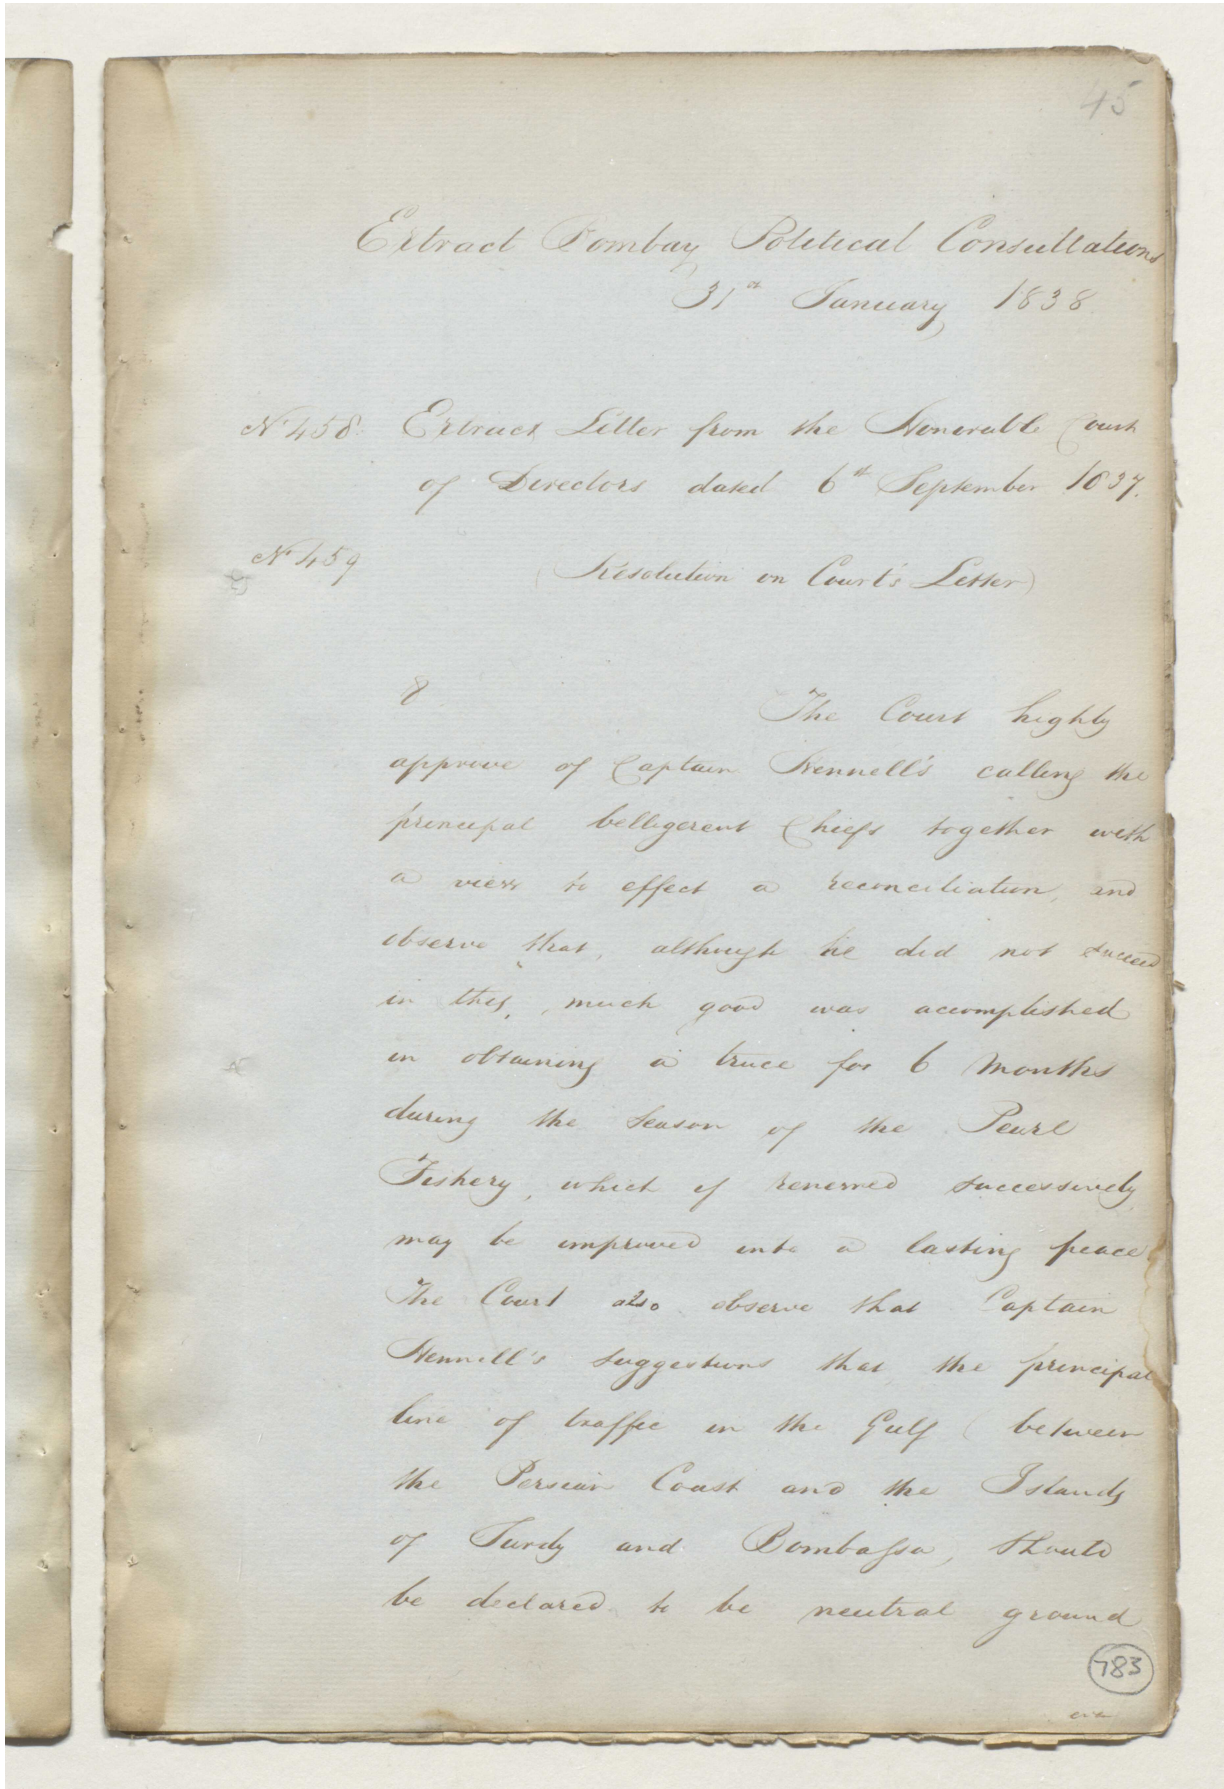 45
Extract Bombay Political Consultations
31st January 1838.
No 458. Extract Letter from the Honorable Court
of Directors dated 6th September 1837.
No 459
(Resolution on Court's Letter)
8 The Court highly
approve of Captain Hennell's calling the
principal belligerent Chiefs together with
a view to effect a reconciliation, and
observe that, although he did not succeed
in this, much good was accomplished
in obtaining a truce for 6 Months
during the Season of the Pearl
Fishery, which if renewed successively
may be improved into a lasting peace
The Court also observe that Captain
Hennell's suggestions that the principal
line of traffic in the Gulf (between
the Persian Coast and the Islands
of Surdy and Bombassa, should
be declared to be neutral ground
783